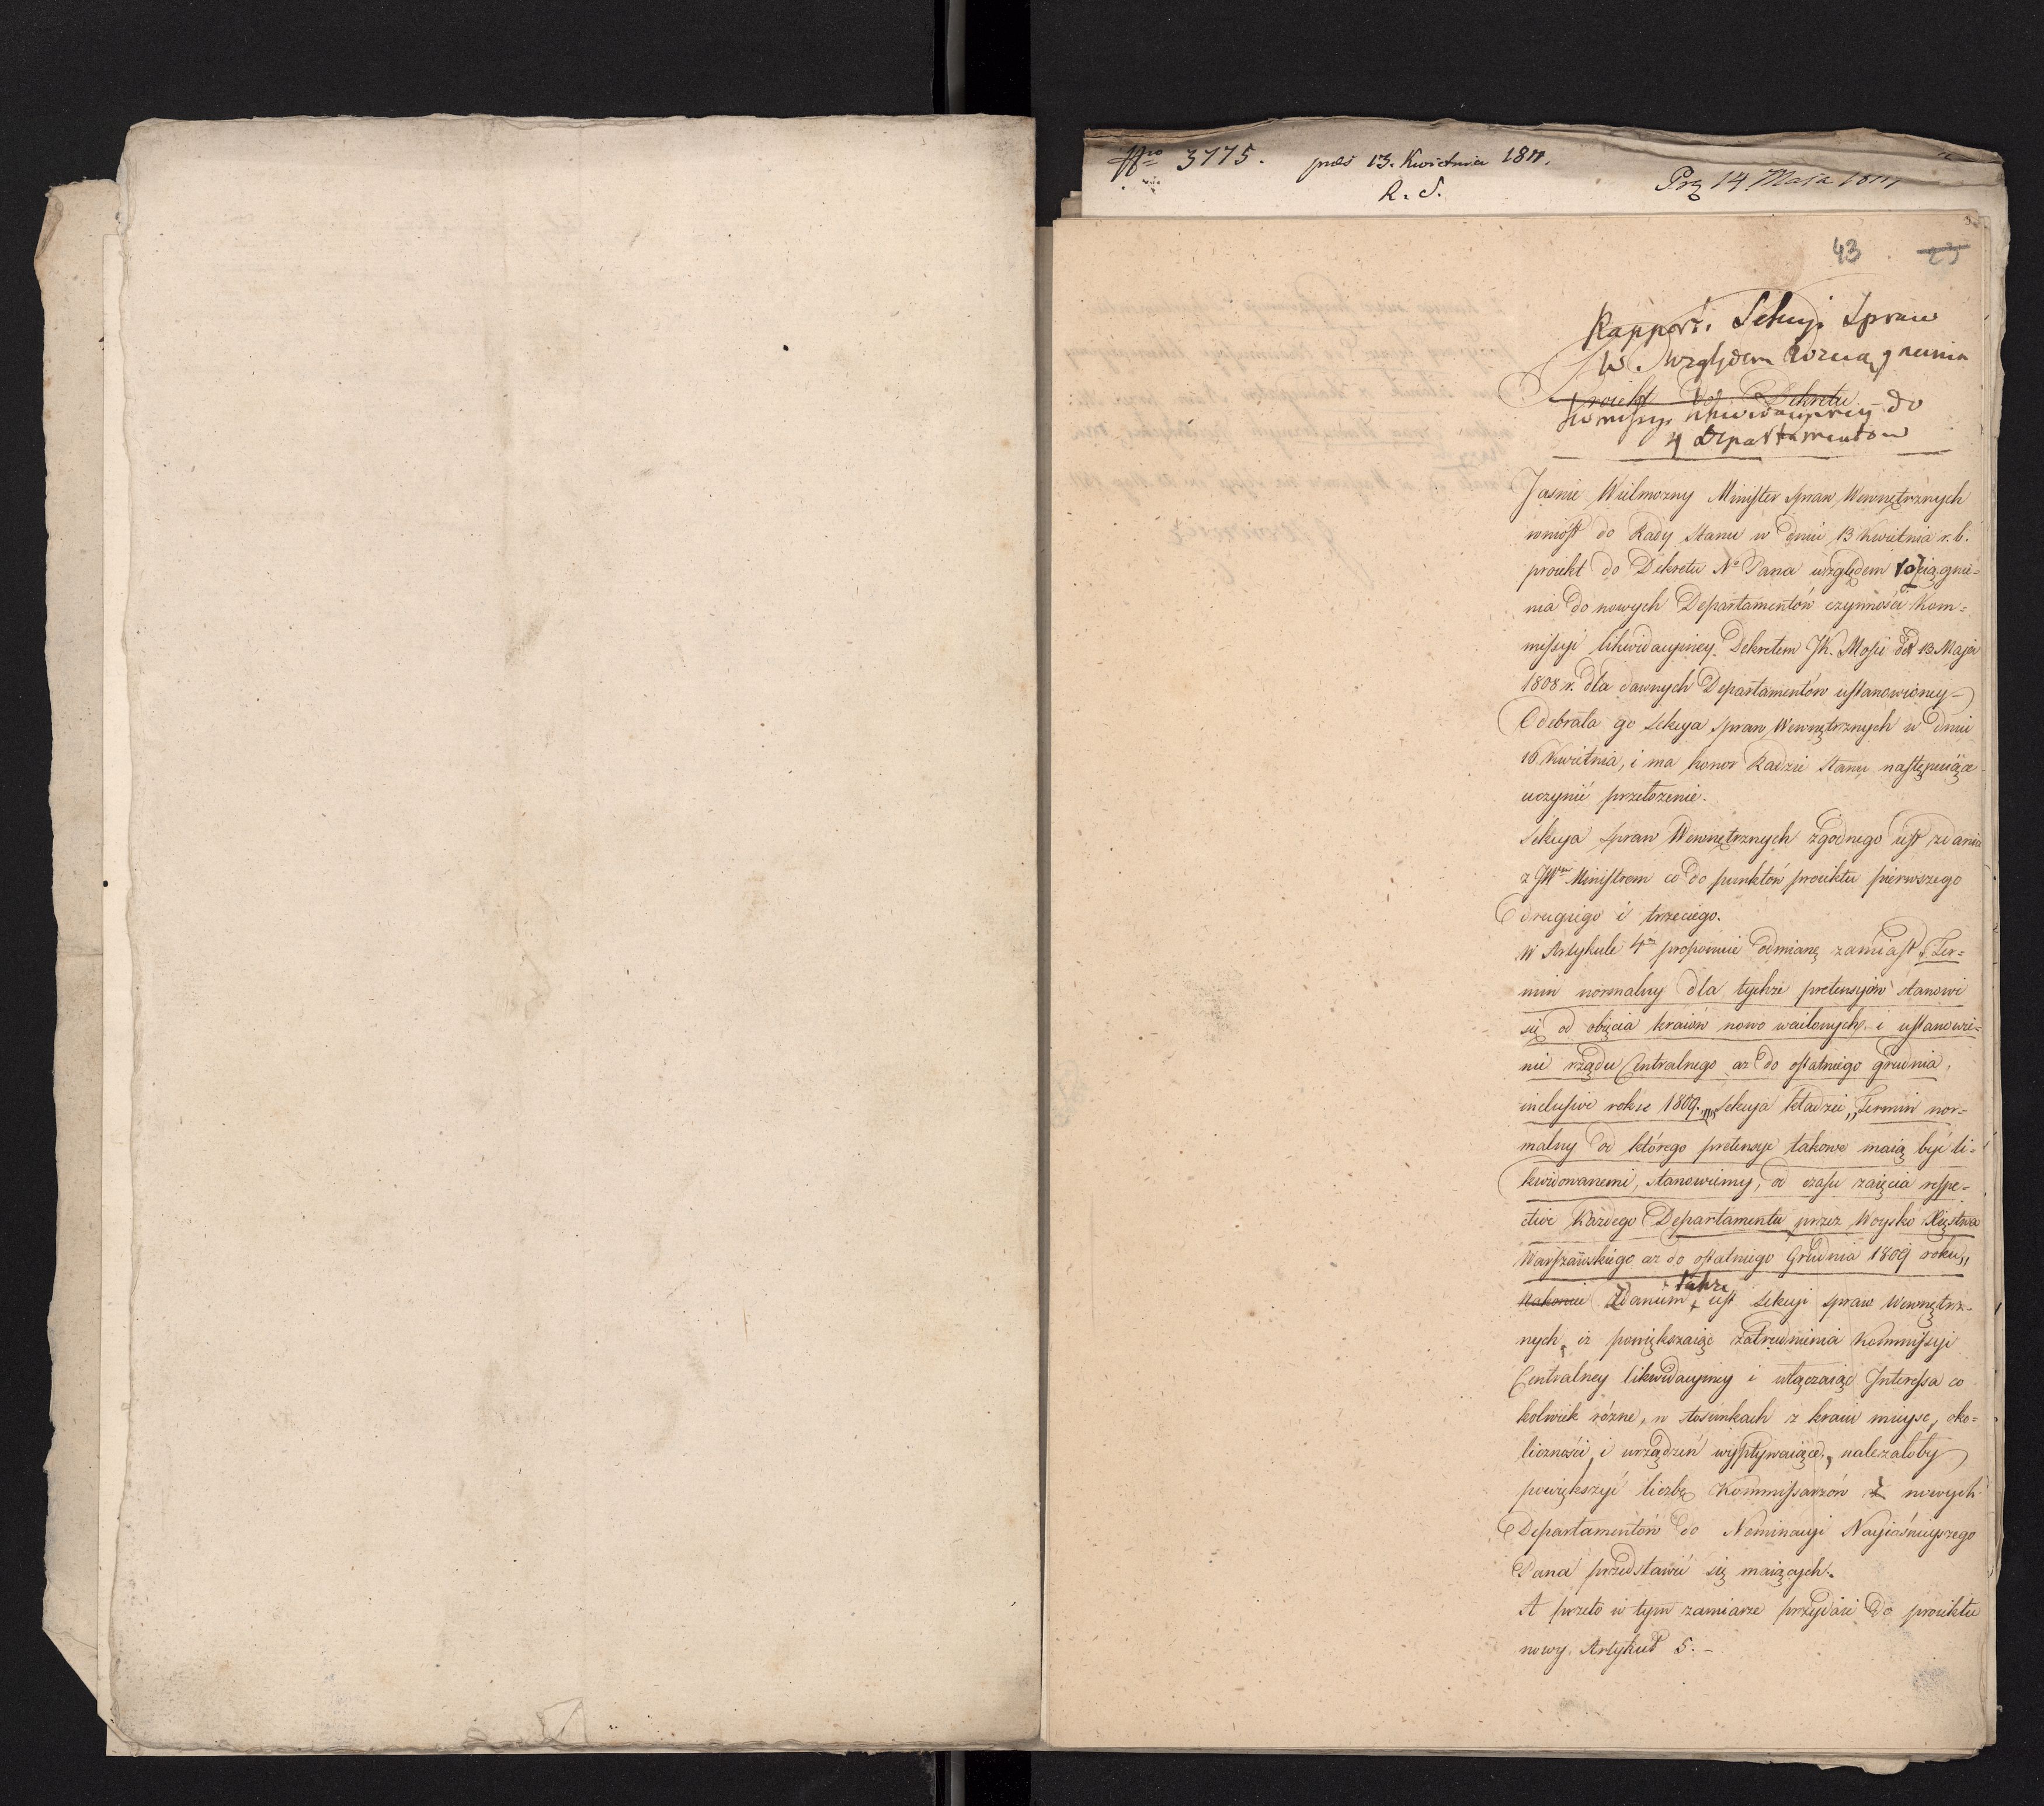 Nro 3775. prds 13. Kwietnia 1811.
R. S.
Prz 14 Maja 1811
43 25
Rapport Sekcyi Spraw
W. względem rozciągnienia
Proiekt do Dekretu
Kommissyi likwidacyiney do
4 Departamentow
Jaśnie Wielmożny Minister Spraw Wewnętrznych
wniósł do Rady Stanu w dniu 13 Kwietnia r. b.
proiekt do Dekretu No Pana względem rozciągnie-
nia do nowych Departamentów czynności Kom-
missyi likwidacyiney Dekretem JK. Mości dd 13 Maja
1808 r. dla dawnych Departamentów ustanowioney
Odebrała go Sekcya Spraw Wewnętrznych w dniu
16 Kwietnia, i ma honor Radzie Stanu następuiące
uczynić przełożenie.
Sekcya Spraw Wewnętrznych zgodnego iest zdania
z JWm Ministrem co do punktów proiektu pierwszego
drugiego i trzeciego.
W Artykule 4m proponuie odmianę zamiast „Ter-
min normalny dla tychże pretensyiów stanowi
się od obięcia kraiów nowo wcielonych i ustanowie-
nie rządu Centralnego aż do ostatniego grudnia
inclusive roku 1809.„ Sekcya kładzie „Termin nor-
malny od którego pretensye takowe maią być li-
kwidowanemi, stanowiemy, od czasu zaięcia respe-
ctive każdego Departamentu przez Woysko Xięstwa
Warszawskiego aż do ostatniego Grudnia 1809 roku„
Nakoniec Zdaniem także iest Sekcyi Spraw Wewnętrz-
nych, iż powiększaiąc zatrudnienia Kommissyi
Centralney likwidacyiney i włączaiąc Interessa co
kolwiek różne, w stosunkach z kraiu mieysc, oko-
liczności, i urządzeń wypływaiące, należałoby
powiększyć liczbę Kommissarzów z nowych
Departamentów do Nominacyi Nayiaśnieyszego
Pana przedstawić się maiących.
A przeto w tym zamiarze przydaie do proiektu
nowy Artykuł 5. –